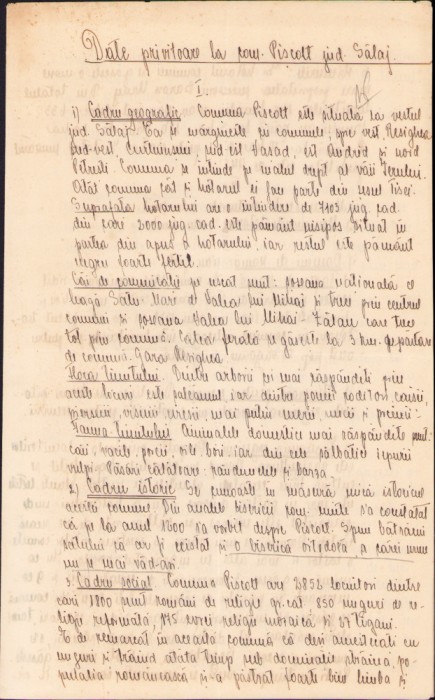 Date privitoare la com. Piscolt jud. Sălaj.
I.
1) Cadru geografic Comuna Piscolt este situată la vestul
jud. Sălaj. Ea se mărginește cu comunele, spre vest Resighea
sud-vest sud-est Vasad, est Andrid și nord
Petrești. Comuna se întinde pe malul drept al văii Ierului.
Atât comuna cât și hotarul ei face parte din șesul Tisei.
Suprafața hotarului are o întindere de 7103 jug. cad.
din cari 3000 jug. cad. este pământ nisipos situat în
partea din apus a hotarului, iar restul este pământ
negru foarte fertil.
Căi de comunicații pe uscat sunt: șoseaua națională ce
leagă Satu-Mari de Valea lui Mihai și trece prin centrul
comunii și șoseaua Valea lui Mihai-Zălau care trece
tot prin comună. Calea ferată se găsește la 3 km. depărtare
de comună. Gara Resighea.
Flora ținutului. Dintre arborii cei mai răspândiți prin
aceste locuri este salcâmul, iar dintre pomii roditori caișii,
piersicii, vișinii cireșii mai puțin merii, nucii și prunii.
Fauna ținutului Animalele domestice mai răspândite sunt:
caii, vacile, porcii, oile, boii, iar din cele sălbatice iepurii
vulpi. Păsări călătoare: rândunelele și barza.
2) Cadru istoric Se cunoaște în măsură mică istoricul
acestei comune. Din analele bisericii rom. unite s'a constatat
că pe la anul 1600 s'a vorbit despre Piscolt. Spun bătrânii
satului că ar fi existat și o biserică ortodoxă, a cărei urme
nu se mai văd azi.
3. Cadru social. Comuna Piscolt are 2852 locuitori dintre
cari 1800 sunt români de religie gr. cat. 850 unguri de re-
ligie reformată, 145 evrei religie mozaică și 57 țigani.
E de remarcat în această comună că deși amestecați cu
unguri și trăind atâta timp sub dominație străină, po-
pulația românească și-a păstrat foarte bine limba și